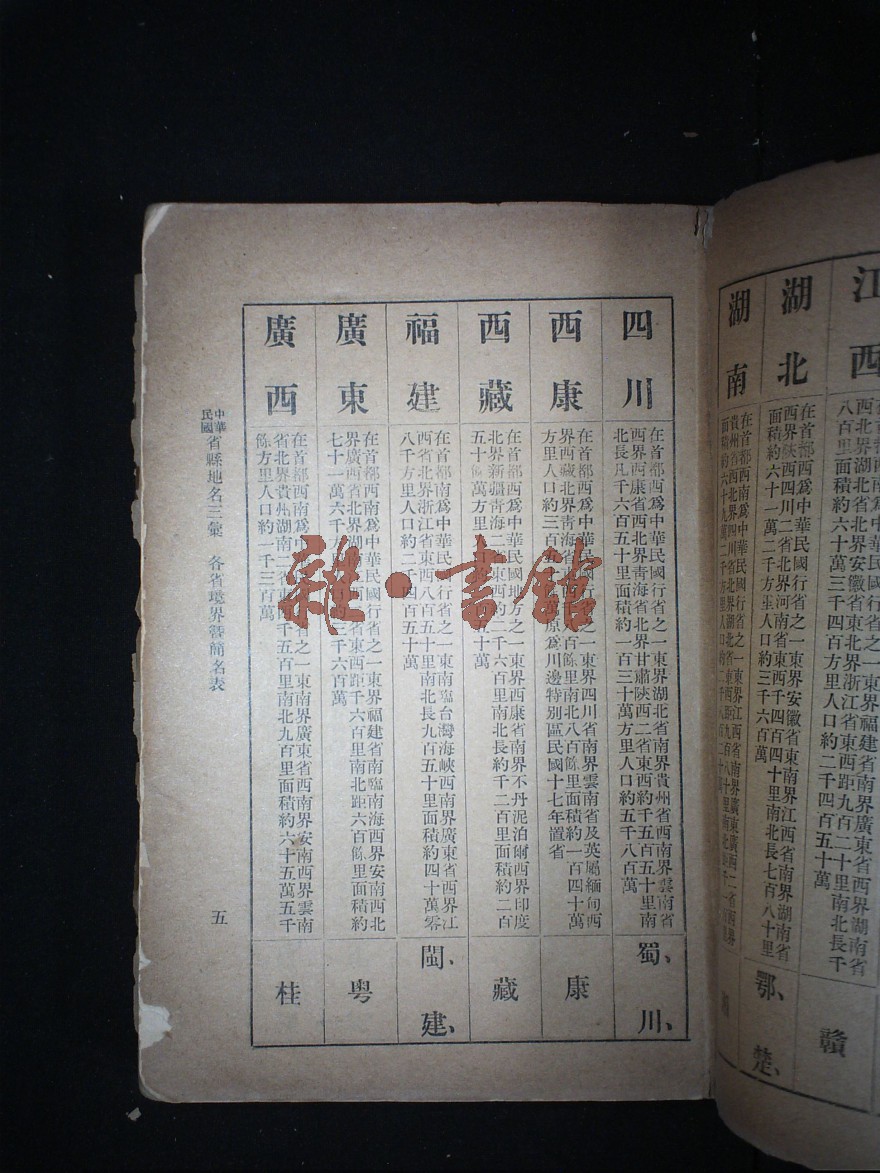 江西
八百里面積約六十萬三千四百方里人口約二千四百五十萬
贛
湖北
在首都西爲中華民國行省之一東界安徽省東南界江西省南界湖南省
西界陝西四川二省北界河南省東西千四百四十里南北長七百八十里
面積約六十一萬二千方里人口約三千六百萬
鄂、楚、
湖南
四川
在首都西爲中華民國行省之一東界湖北省南界貴州省西南界雲南省
西界西康省西北界青海省北界甘肅陝西二省東西約千五百五十里南
北長凡千六百五十里面積約一百三十萬方里人口約五千八百萬
蜀、川、
西康
在首都西爲中華民國行省之一東界四川省南界雲南省及英屬緬甸西
界西藏北界靑海省百餘里南北八百餘里面積約一百四十萬
方里人口約三百五萬原爲川邊特別區民國十七年置省
康
西藏
在首都西爲中華民國地方之一東界西康省南界不丹泥泊爾西界印度
北界新疆靑海二東西二千六百里南北長約千二百里面積約二百
五十萬方里十萬
藏
福建
在首都南爲中華民國行省之一東南臨台灣海峽西南界廣東省西界江
西省北界浙江省東西八百五十里南北長九百五十里面積約四十萬零
八千方里人口約二千四百五十萬
閩、建、
廣東
在首都西南爲中華民國行省之一東界福建省南臨南海西界安南西北
界廣西省北界湖南西省東西距千六百里南北距六百餘里面積約
七十一萬六千三千六百萬
粵
廣西
在首都西南爲中華民國行省之一東南界廣東省西南界安南西界雲南
省北界貴州湖南省東西千五百里南北九百里面積約六十五萬五千
餘方里人口約一千三百萬
桂
中華民國省縣地名三彙 各省境界暨簡名表
五
雜·書館